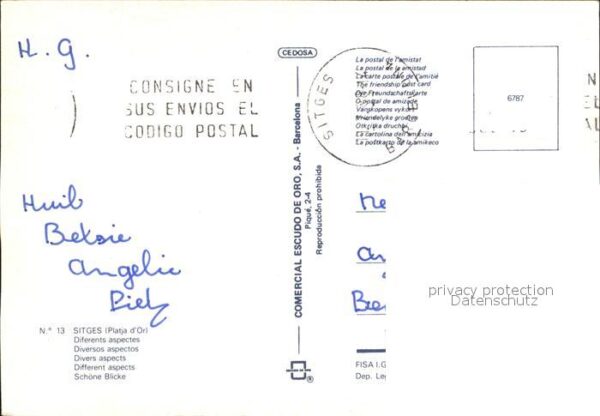 H. G.
CONSIGNE EN
SUS ENVIOS EL
CODIGO POSTAL
Huib
Betsie
Angelic
Piet
N.º 13 SITGES (Platja d'Or)
Diferents aspectes
Diversos aspectos
Divers aspects
Different aspects
Schöne Blicke
CEDOSA
COMERCIAL ESCUDO DE ORO, S.A. - Barcelona
Piqué, 2-4
Reproducción prohibida
®
SITGES
BARCELONA
La postal de l'amistat
La postal de la amistad
La carte postale de l'amitié
The friendship post card
Der Freundschaftskarte
O postal de amizade
Vänskapens vykort
La cartolina dell'amicizia
La postkarto de la amikeco
6787
N
EL
AL
An
Be
privacy protection
Datenschutz
FISA I.G
Dep. Leg